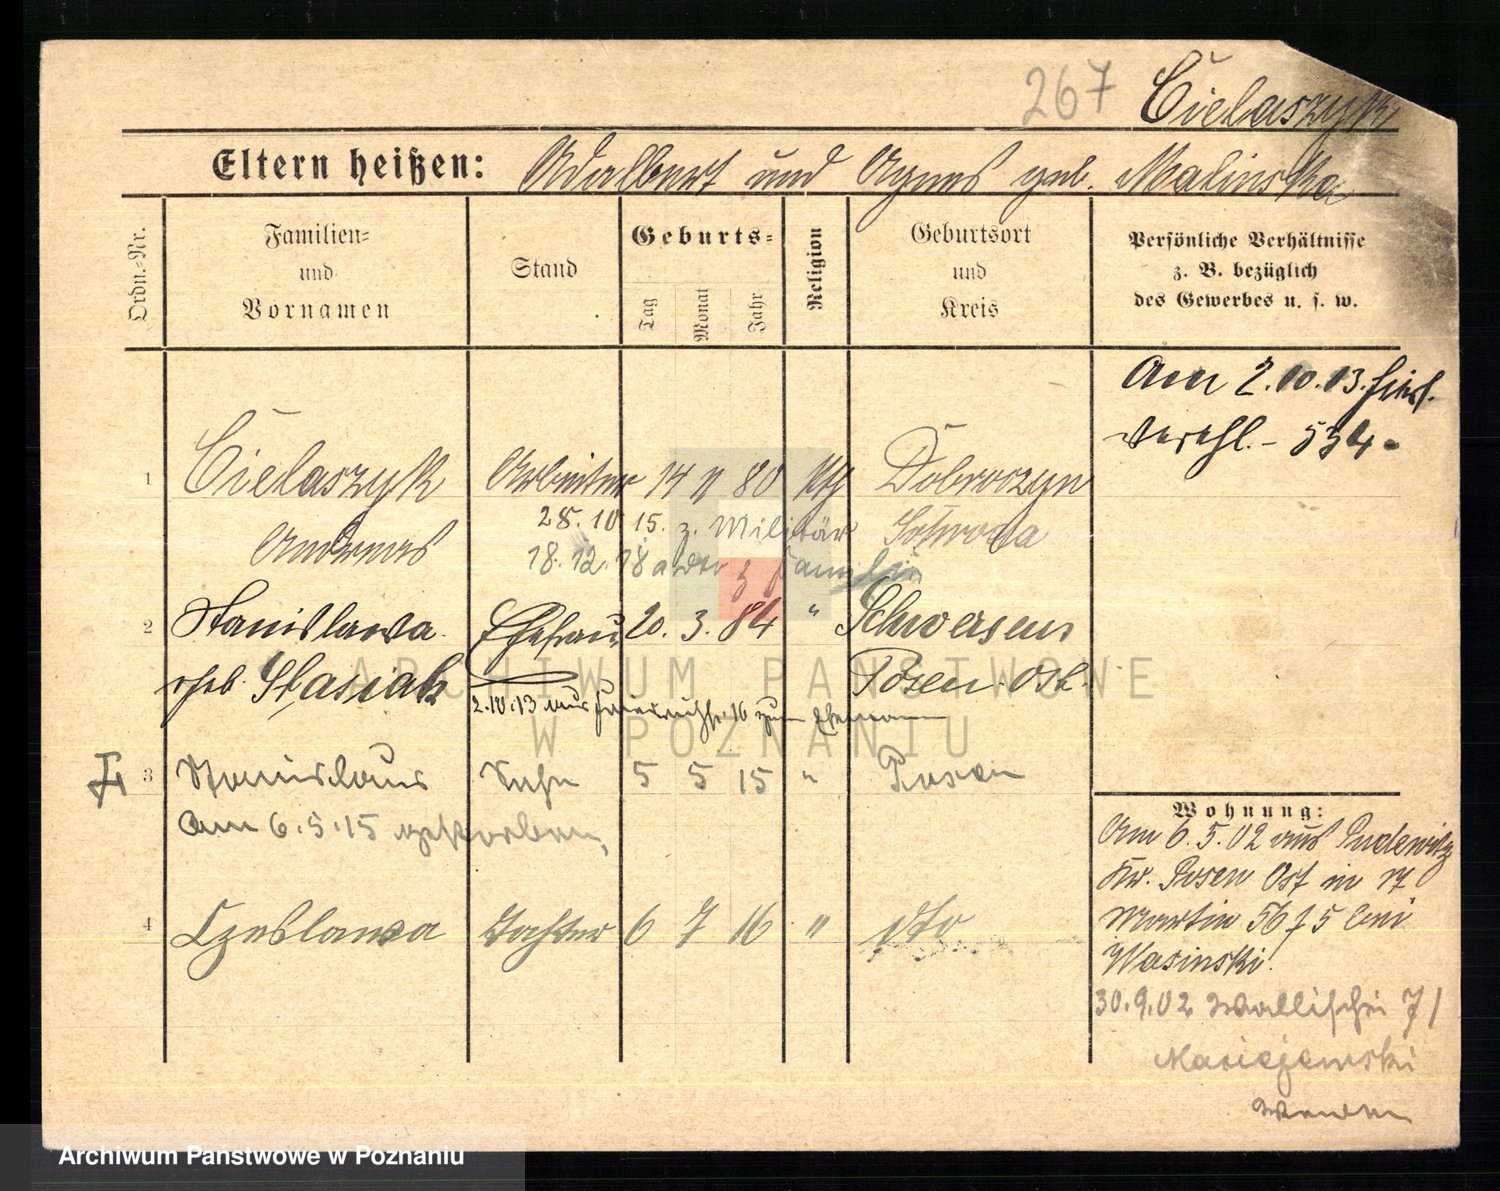 267 Cielaszyk
Eltern heißen: Adalbert und Agnes geb. Malinska
Ordn.-Nr.
Familien-
und
Vornamen
Stand
Geburts-
Tag
Monat
Jahr
Religion
Geburtsort
und
Kreis
Persönliche Verhältnisse
z. B. bezüglich
des Gewerbes u. s. w.
Am 2.10.13. hier
verehl. - 534 -
1 Cielaszyk Arbeiter 14 11 80 kth Dobroczyn
Andreas
28.10.15. z. Militär Schroda
18.12.18 z Familie
2 Stanislawa Ehefrau 20. 3. 84 " Schwersenz
geb. Stasiak Posen. Ost.
2.10.13 aus 16 zum Ehemann
3 Stanislaus Sohn 5 5 15 " Posen
am 6.5.15 gestorben,
4 Czeslawa Tochter 6 7 16 " dto
Wohnung:
Am 6.5.02 aus Pudewitz
Kr. Posen Ost in
Martin 56 bei
Wasinski.
30.9.02 Wallischei 71
Maciejewski
ARCHIWUM PAŃSTWOWE
W POZNANIU
Archiwum Państwowe w Poznaniu